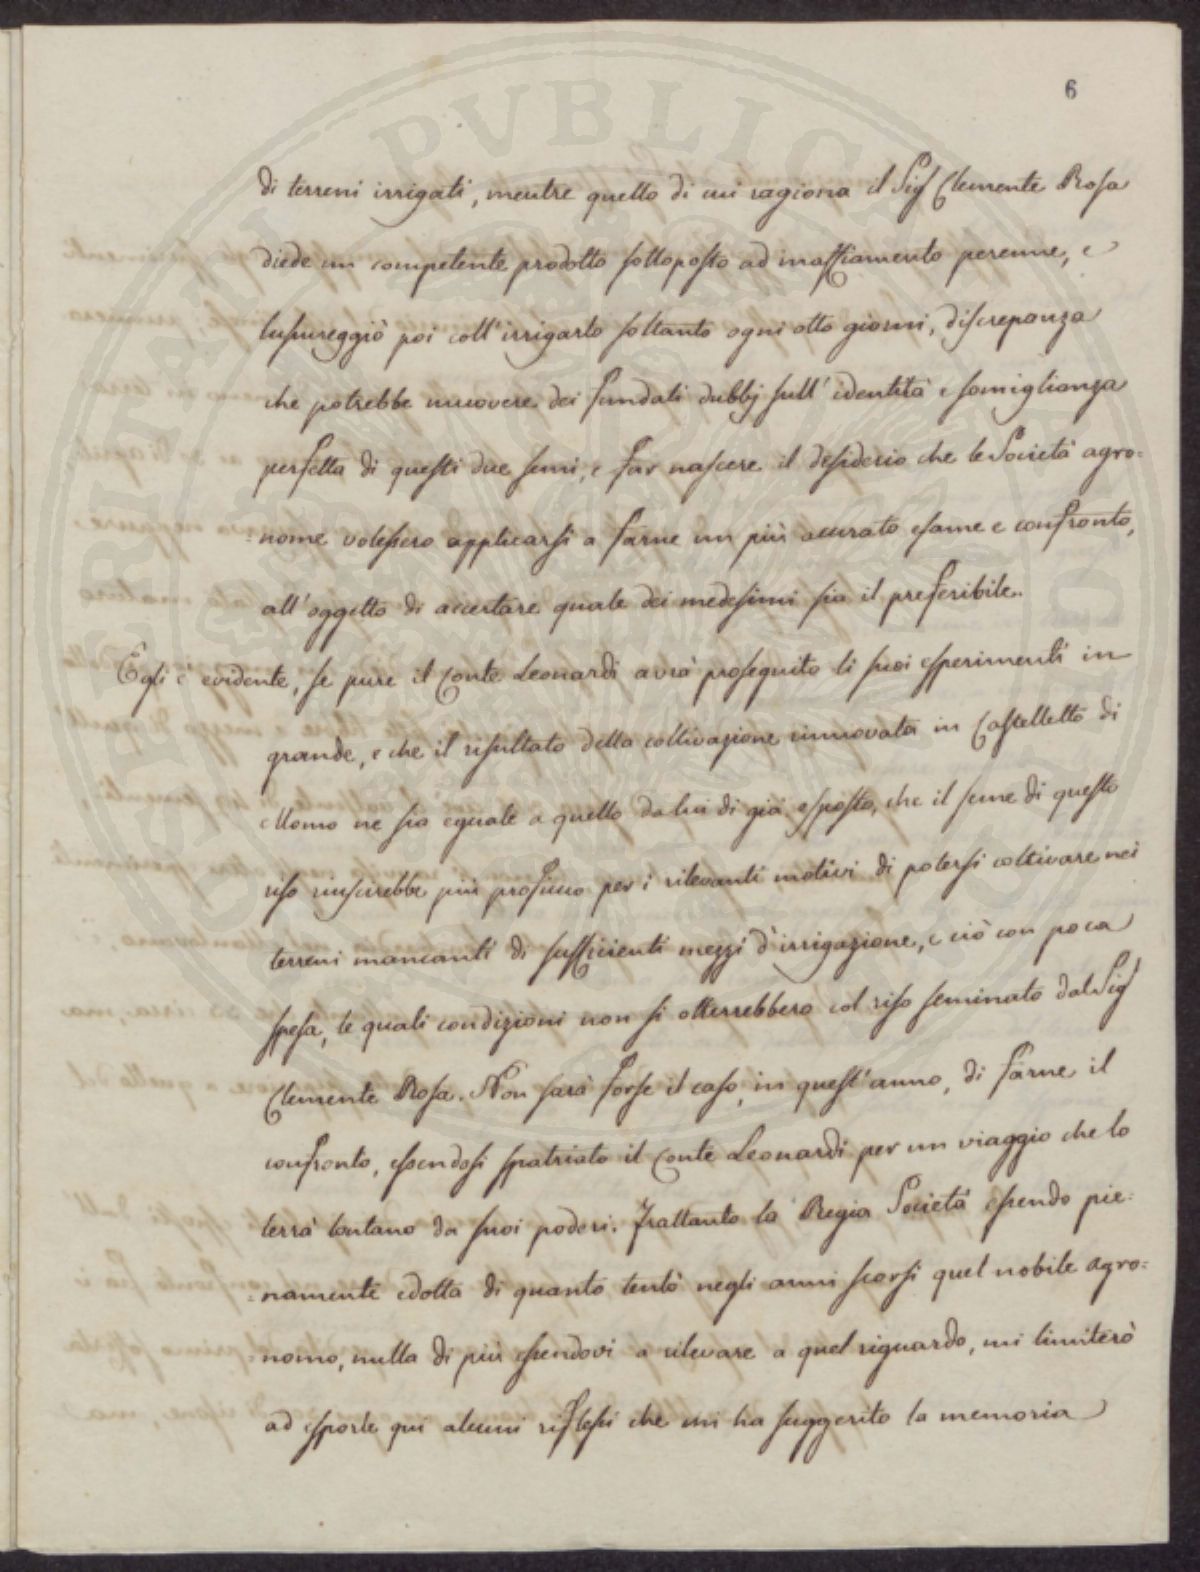 6
di terreni irrigati, mentre quello di cui ragiona il Sig.r Clemente Rosa
diede un competente prodotto sottoposto ad inaffiamento perenne, e
lussureggiò poi coll'irrigarlo soltanto ogni otto giorni, discrepanza
che potrebbe muovere dei fundati dubbj sull'identità e somiglianza
perfetta di questi due semi, e far nascere il desiderio che le Società agro=
=nome volessero applicarsi a farne un più accurato esame e confronto,
all'oggetto di accertare quale dei medesimi sia il preferibile.
Egli è evidente, se pure il Conte Leonardi avrà proseguito li suoi esperimenti in
grande, e che il risultato della coltivazione rinnovata in Castelletto di
Momo ne sia eguale a quello da lui di già esposto, che il seme di questo
riso riuscirebbe più proficuo per i rilevanti motivi di potersi coltivare nei
terreni mancanti di sufficienti mezzi d'irrigazione, e ciò con poca
spesa, le quali condizioni non si otterrebbero col riso seminato dal Sig.r
Clemente Rosa. Non sarà forse il caso, in quest'anno, di farne il
confronto, essendosi spatriato il Conte Leonardi per un viaggio che lo
terrà lontano da suoi poderi. Frattanto la Regia Società essendo pie=
=namente edotta di quanto tentò negli anni scorsi quel nobile agro=
nomo, nulla di più essendovi a rilevare a quel riguardo, mi limiterò
ad esporle qui alcuni riflessi che mi ha suggerito la memoria
PVBLIC